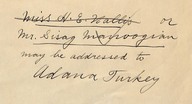 Miss H. E. Wallis or
Mr. Sirag Manoogian
may be addressed to
Adana Turkey